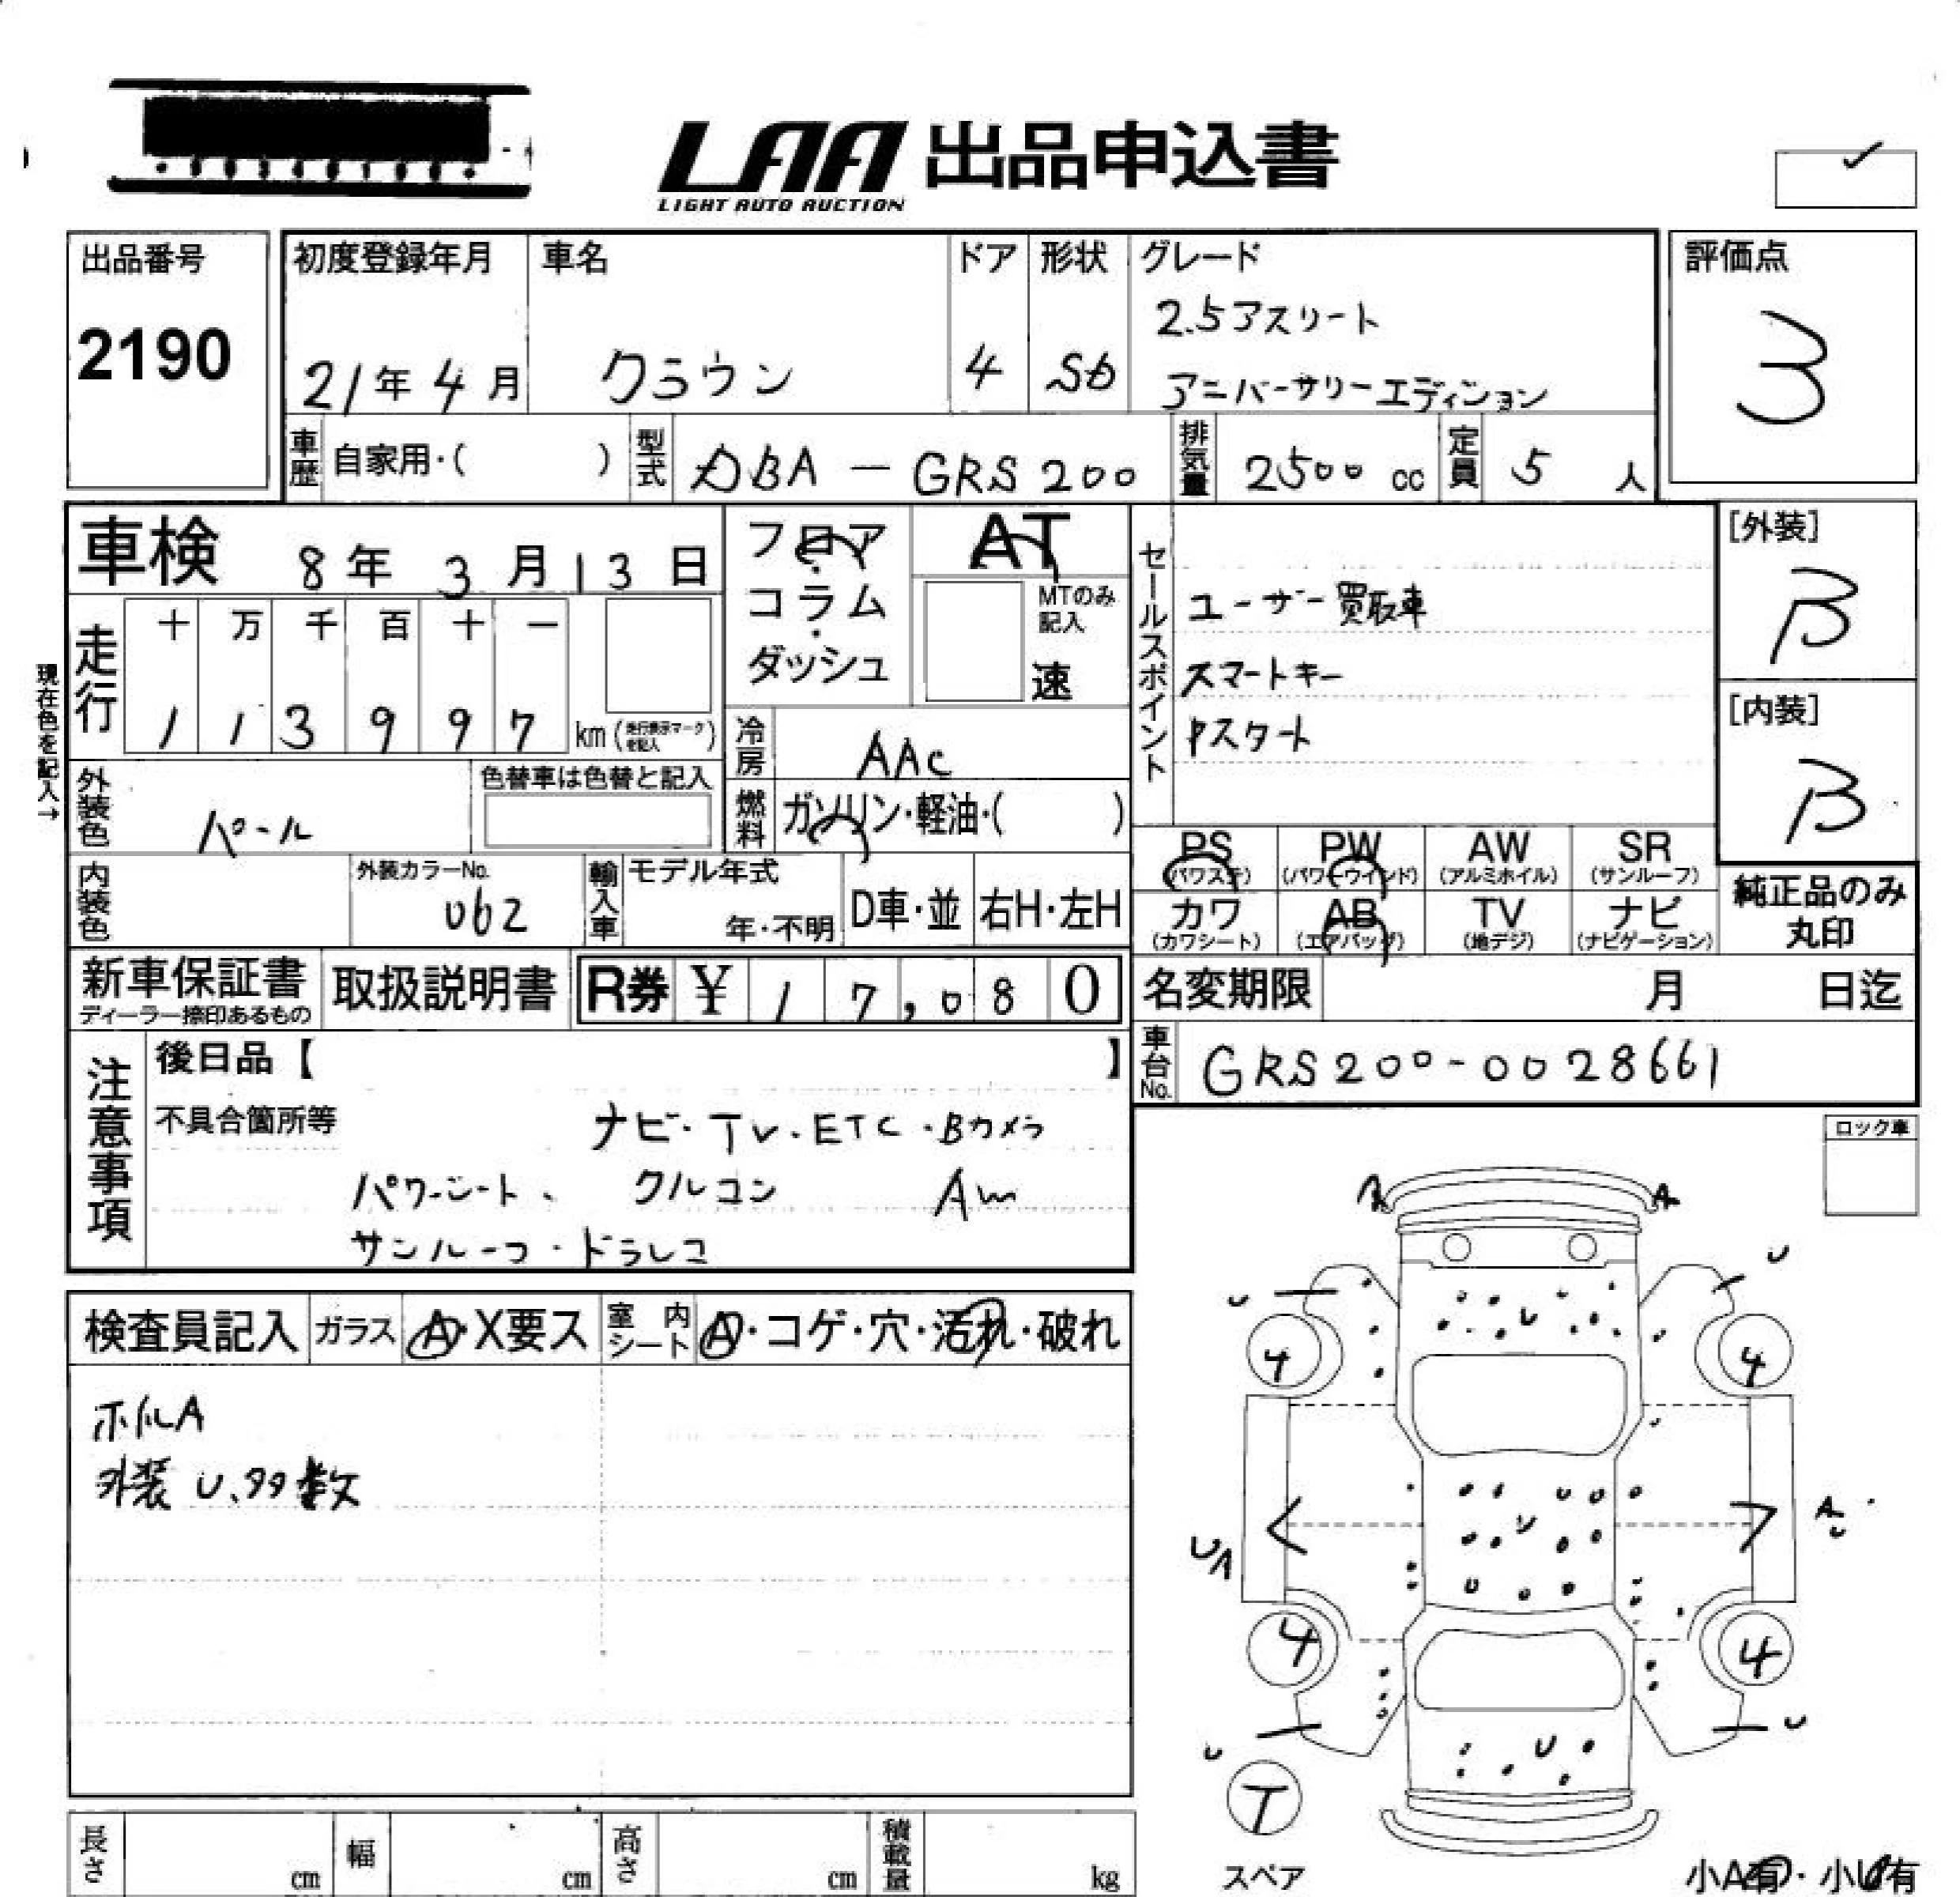 LAA 出品申込書
LIGHT AUTO AUCTION
出品番号
2190
初度登録年月
21年 4月
車名
クラウン
ドア
4
形状
Sb
グレード
2.5アスリート
アニバーサリーエディション
評価点
3
車歴 自家用・( )
型式 DBA - GRS200
排気量 2500 cc
定員 5 人
車検 8年 3月 13日
フロア・コラム・ダッシュ
AT
MTのみ記入
速
セールスポイント
ユーザー買取車
スマートキー
Pスタート
[外装]
B
[内装]
B
現在色を記入→
走行
十 万 千 百 十 一
1 1 3 9 9 7 km (走行表示マークを記入)
冷房 AAC
燃料 ガソリン・軽油・( )
外装色 パール
色替車は色替と記入
内装色
外装カラーNo.
062
輸入車
モデル年式
年・不明
D車・並
右H・左H
PS (パワステ)
PW (パワーウインド)
AW (アルミホイル)
SR (サンルーフ)
カワ (カワシート)
AB (エアバッグ)
TV (地デジ)
ナビ (ナビゲーション)
純正品のみ
丸印
新車保証書
ディーラー捺印あるもの
取扱説明書
R券 ¥ 17,080
名変期限 月 日迄
車台No. GRS200-0028661
注意事項
後日品【 】
不具合箇所等
ナビ・TV・ETC・Bカメラ
パワーシート、クルコン Aw
サンルーフ・ドラレコ
ロック車
検査員記入
ガラス A・X要ス
室内シート A・コゲ・穴・汚れ・破れ
ホイルA
外装 U、タタ数
A A
U U
4 4
U
UA A U
4 4
U U
U U
T
スペア
小A有・小U有
長さ cm
幅 cm
高さ cm
積載量 kg